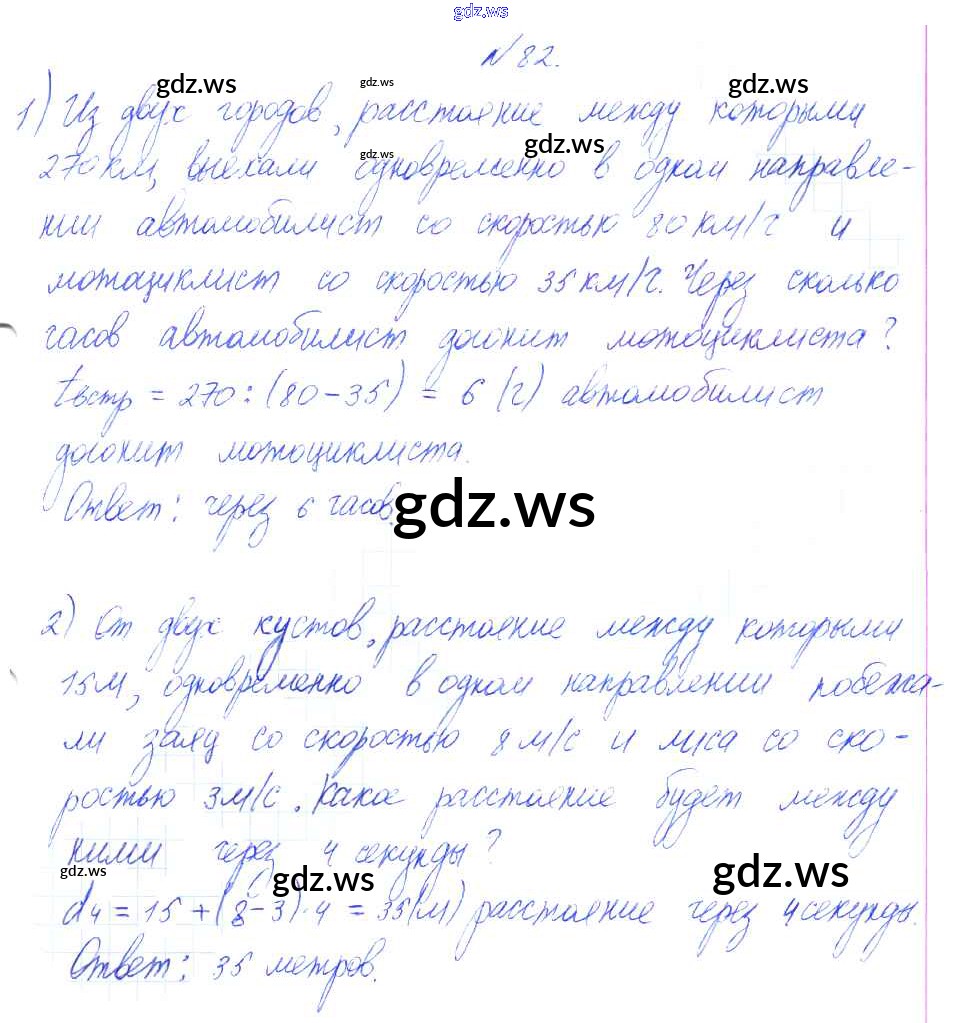 gdz.ws
№ 82.
1) Из двух городов, расстояние между которыми
270 км, выехали одновременно в одном направле-
нии автомобилист со скоростью 80 км/ч и
мотоциклист со скоростью 35 км/ч. Через сколько
часов автомобилист догонит мотоциклиста?
tвстр = 270 : (80 - 35) = 6 (ч) автомобилист
догонит мотоциклиста.
Ответ: через 6 часов.
2) От двух кустов, расстояние между которыми
15 м, одновременно в одном направлении побежа-
ли заяц со скоростью 8 м/с и лиса со ско-
ростью 3 м/с. Какое расстояние будет между
ними через 4 секунды?
d4 = 15 + (8 - 3) · 4 = 35 (м) расстояние через 4 секунды.
Ответ: 35 метров.
gdz.ws
gdz.ws
gdz.ws
gdz.ws
gdz.ws
gdz.ws
gdz.ws
gdz.ws
gdz.ws